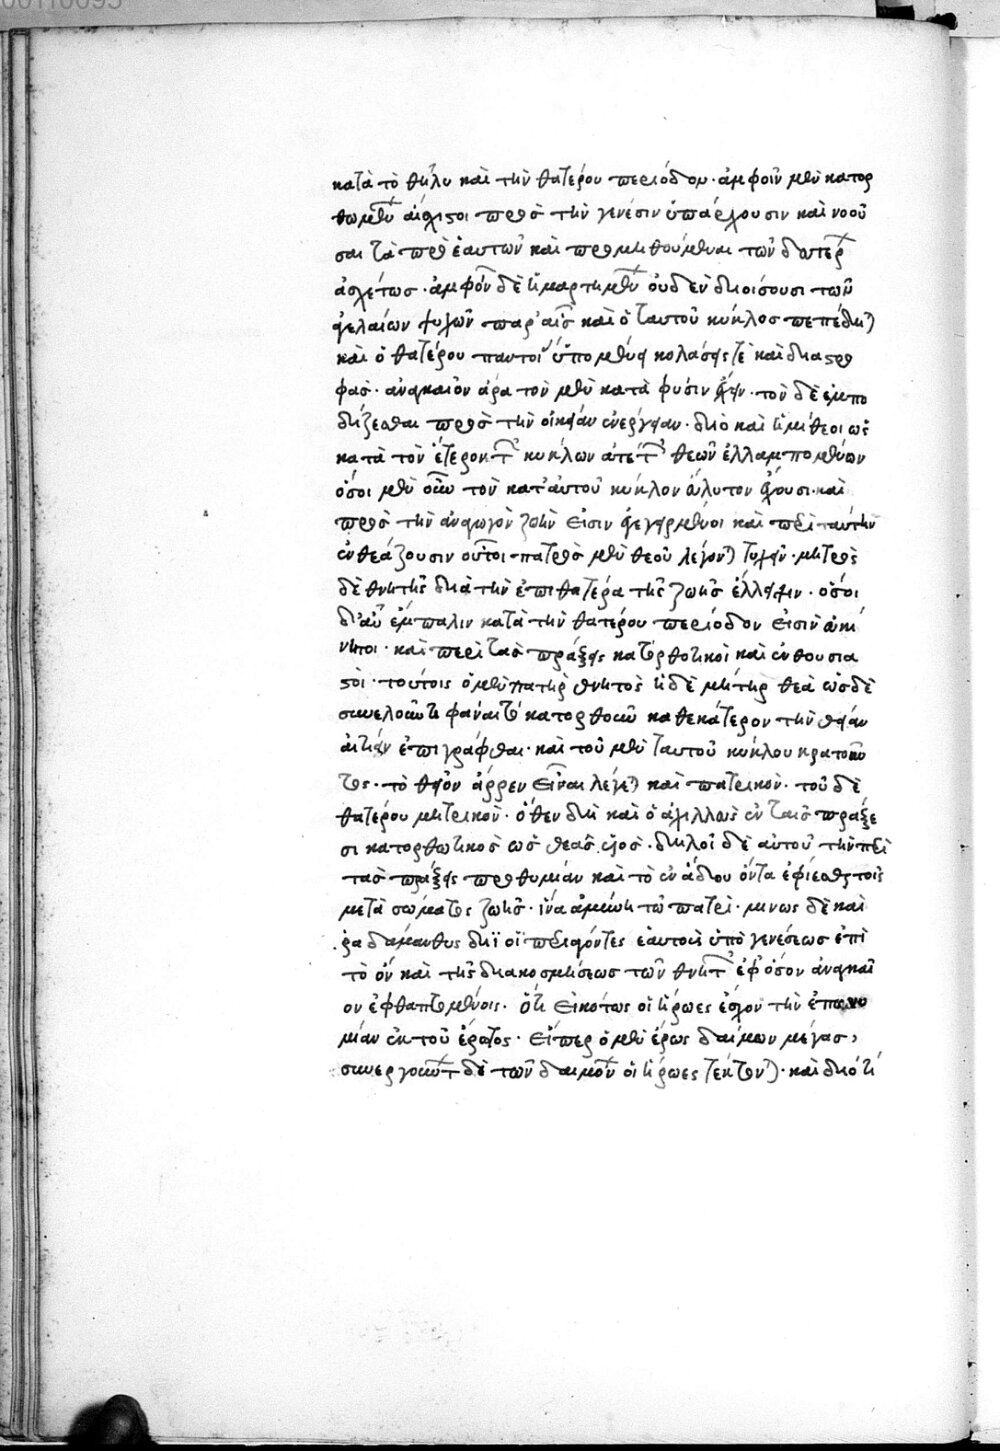 κατὰ τὸ θῆλυ καὶ τὴν θατέρου περίοδον· ἀμφοῖν μὲν κατορ
θωμένων αἱ ψυχαὶ πρὸς τὴν γενέσιν ὑπάρχουσιν καὶ νοοῦ
σαι τὰ πρὸ ἑαυτῶν καὶ προμηθούμεναι τῶν δευτέρων
ἀσχέτως· ἀμφοῖν δὲ ἡμαρτημένων οὐδὲν διοίσουσι τῶν
ἀγελαίων ψυχῶν παρ' αἷς καὶ ὁ ταυτοῦ κύκλος πεπέδηται
καὶ ὁ θατέρου παντοίας ὑπομένει κολάσεις τὲ καὶ διαστρο
φάς· ἀναγκαῖον ἄρα τὸν μὲν κατὰ φύσιν ἔχειν· τὸν δὲ ἐμπο
δίζεσθαι πρὸς τὴν οἰκείαν ἐνέργειαν· διὸ καὶ ἡμίθεοι ὡς
κατὰ τὸν ἕτερον τῶν κύκλων ἀπὸ τῶν θεῶν ἐλλαμπομένων
ὅσοι μὲν οὖν τὸν κατ' αὐτοῦ κύκλον ἄλυτον ἔχουσι καὶ
πρὸς τὴν ἀναγωγὸν ζωὴν εἰσὶν ἐγηγερμένοι καὶ περὶ ταύτην
ἐνθεάζουσιν οὗτοι πατρὸς μὲν θεοῦ λέγονται τυχεῖν· μητρὸς
δὲ θνητῆς διὰ τὴν ἐπὶ θάτερα τῆς ζωῆς ἔλλειψιν· ὅσοι
δ' αὖ ἔμπαλιν κατὰ τὴν θατέρου περίοδον εἰσὶν ἀκί
νητοι· καὶ περὶ τὰς πράξεις κατορθοτικοὶ καὶ ἐνθουσια
στοι· τούτοις ὁ μὲν πατὴρ θνητὸς ἡ δὲ μήτηρ θεὰ ὡς δὲ
συνελόντι φάναι τὸ κατορθοῦν καθεκάτερον τὴν θείαν
αἰτίαν ἐπιγράφεται· καὶ τοῦ μὲν ταυτοῦ κύκλου κρατοῦν
τος· τὸ θεῖον ἄρρεν εἶναι λέγεται καὶ πατρικὸν· τοῦ δὲ
θατέρου μητρικὸν· ὅθεν δὴ καὶ ὁ ἀχιλλεὺς ἐν ταῖς πράξε
σι κατορθωτικὸς ὡς θεᾶς υἱός· δηλοῖ δὲ αὐτοῦ τὴν περὶ
τὰς πράξεις προθυμίαν καὶ τὸ ἐν ἅδου ὄντα ἐφίεσθαι τῆς
μετὰ σώματος ζωῆς· ἵνα ἀμύνη τῶ πατρὶ· μίνως δὲ καὶ
ῥαδάμανθυς διῒ οἳ περιάγοντες ἑαυτοὺς ὑπὸ γενέσεως ἐπὶ
τὸ ὂν καὶ τῆς διακοσμήσεως τῶν θνητῶν ἐφ' ὅσον ἀναγκαῖ
ον ἐφθαπτομένοις· ὅτι εἰκότως οἱ ἥρωες ἔσχον τὴν ἐπωνυ
μίαν ἐκ τοῦ ἔρωτος· εἴπερ ὁ μὲν ἔρως δαίμων μέγας,
συνεργοῦντων δὲ τῶν δαιμόνων οἱ ἥρωες τέκτονται· καὶ διότι